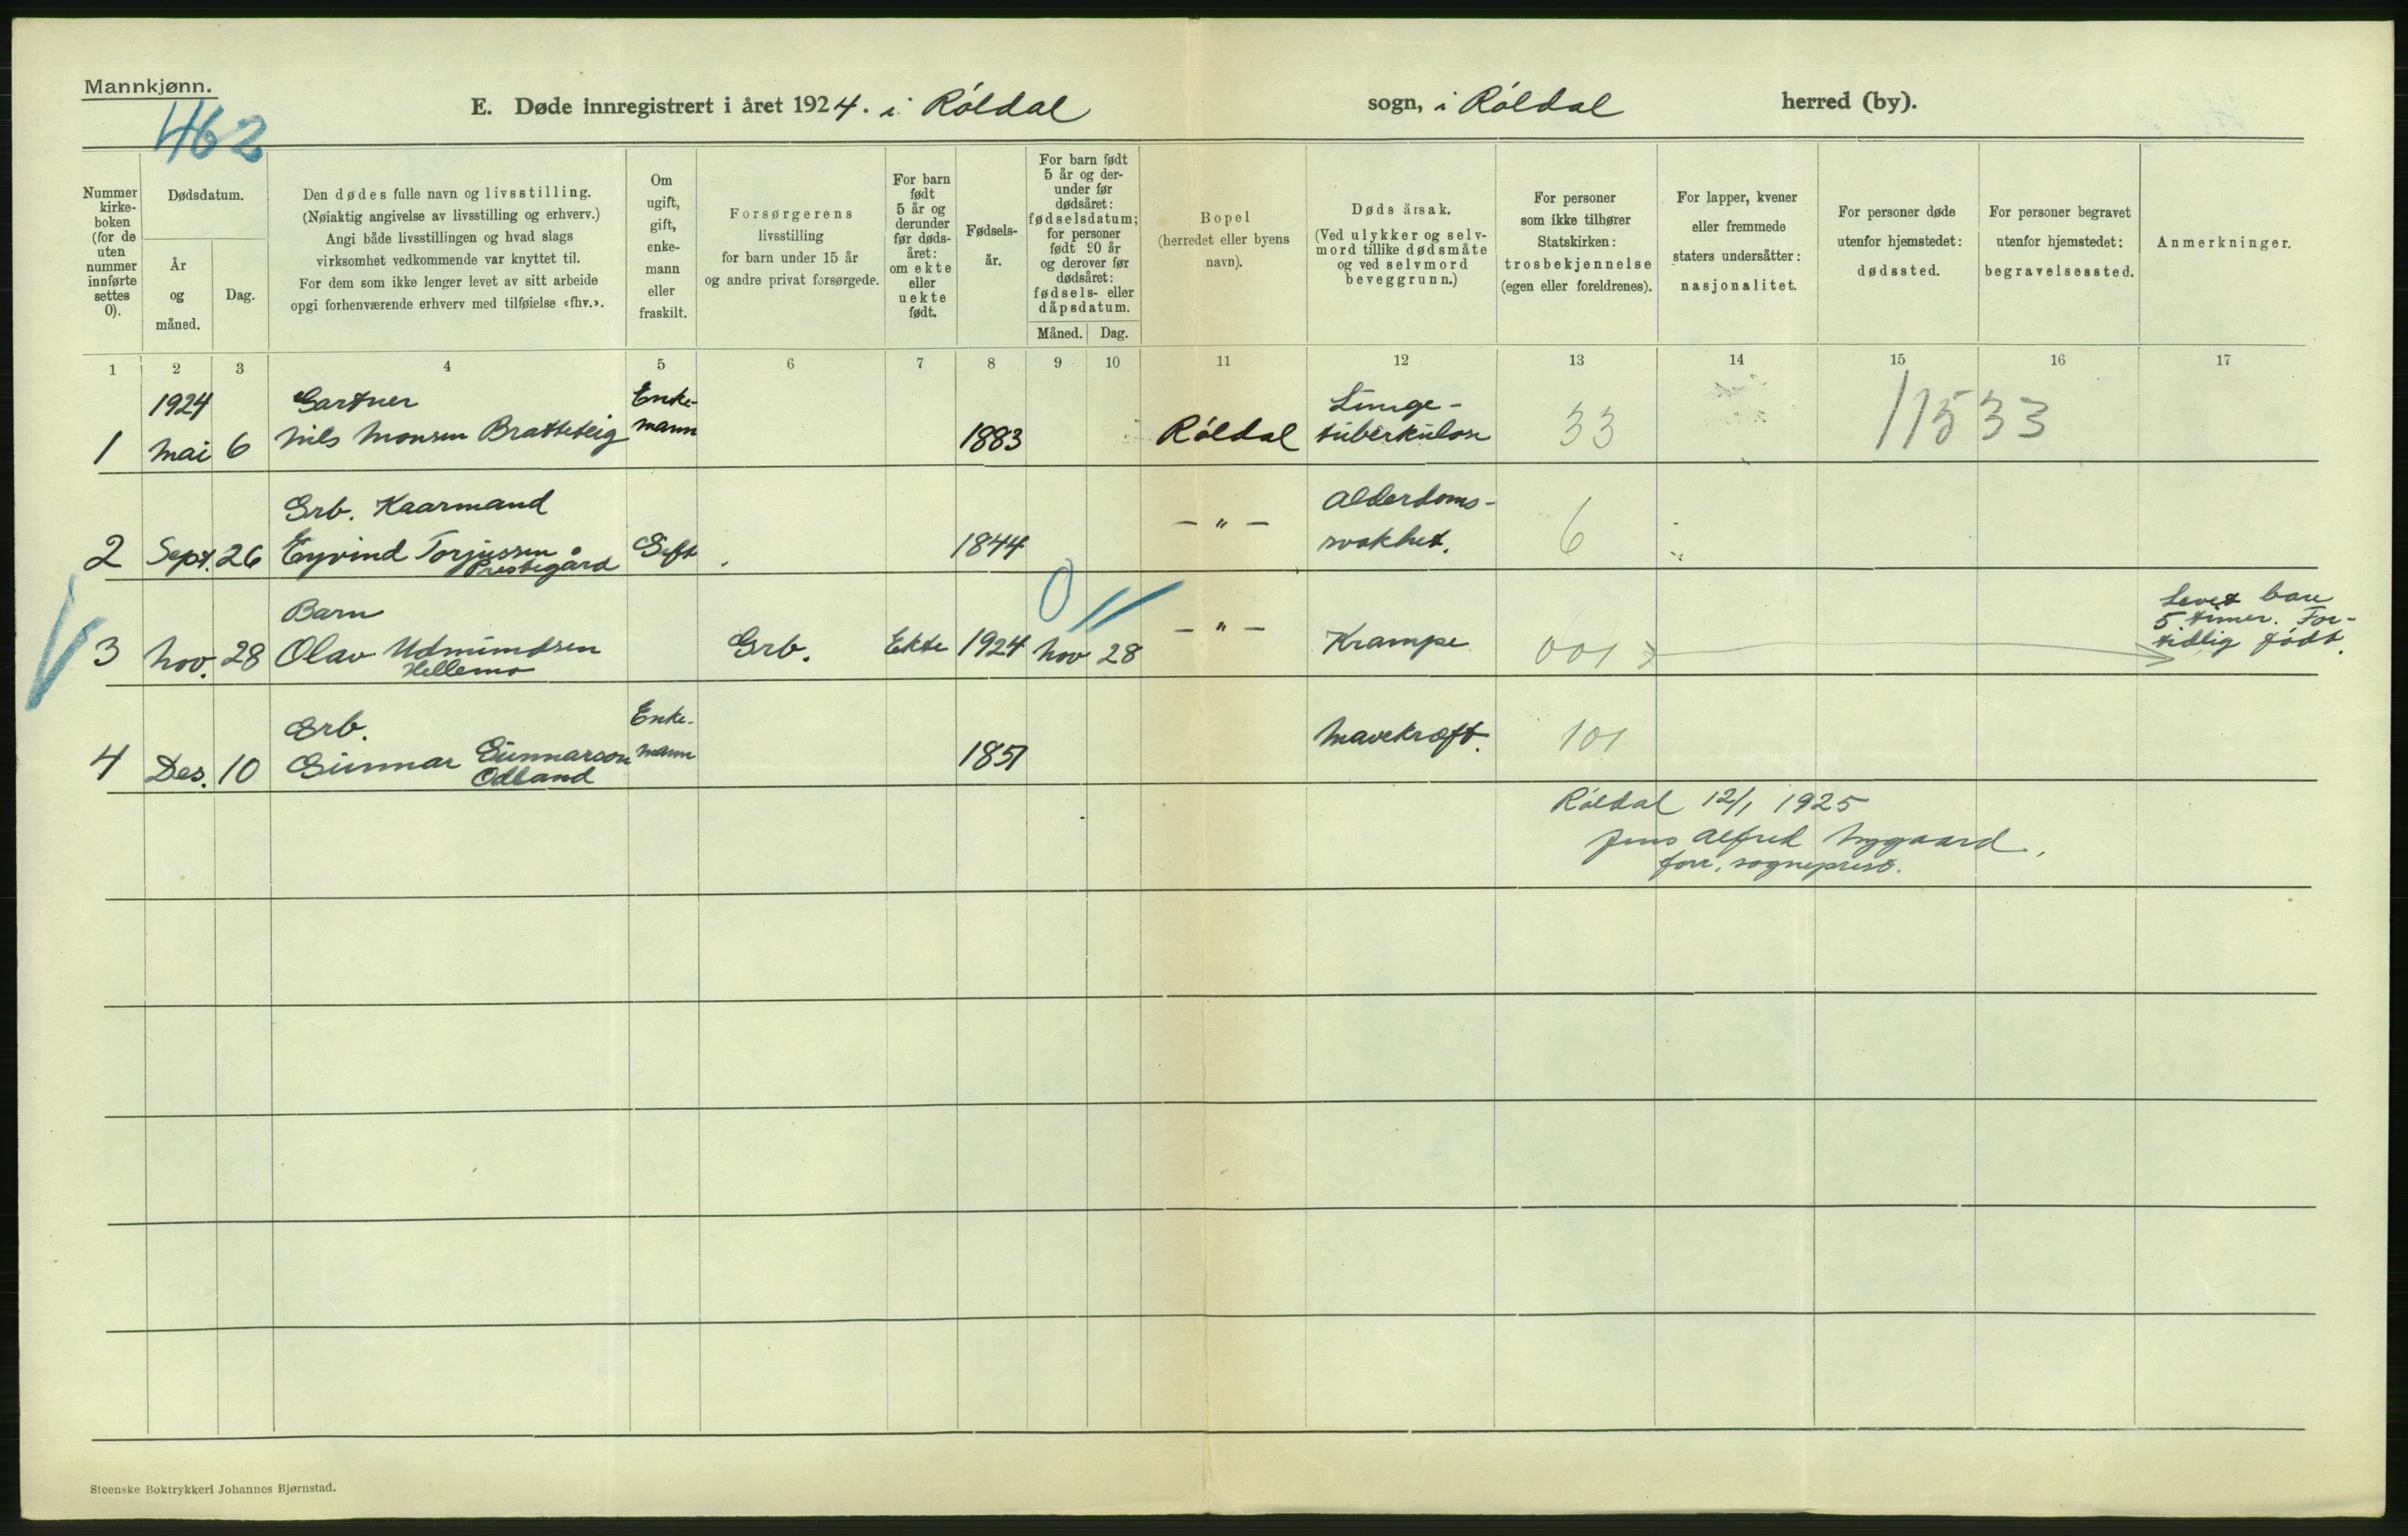 Mannkjønn.
462
E. Døde innregistrert i året 1924. i Róldal sogn, i Róldal herred (by).
Nummer kirke-boken (for de uten nummer innførte settes 0).
Dødsdatum.
År og måned.
Dag.
Den dødes fulle navn og livsstilling.
(Nøiaktig angivelse av livsstilling og erhverv.)
Angi både livsstillingen og hvad slags
virksomhet vedkommende var knyttet til.
For dem som ikke lenger levet av sitt arbeide
opgi forhenværende erhverv med tilføielse «fhv.».
Om ugift, gift, enke-mann eller fraskilt.
Forsørgerens
livsstilling
for barn under 15 år
og andre privat forsørgede.
For barn født 5 år og derunder før døds-året: om ekte eller uekte født.
Fødsels-år.
For barn født 5 år og der-under før dødsåret: fødselsdatum; for personer født 90 år og derover før dødsåret: fødsels- eller dåpsdatum.
Måned. Dag.
Bopel
(herredet eller byens navn).
Dødsårsak.
(Ved ulykker og selv-mord tillike dødsmåte og ved selvmord beveggrunn.)
For personer som ikke tilhører Statskirken: trosbekjennelse (egen eller foreldrenes).
For lapper, kvener eller fremmede staters undersåtter: nasjonalitet.
For personer døde utenfor hjemstedet: dødssted.
For personer begravet utenfor hjemstedet: begravelsessted.
Anmerkninger.
1 2 3 4 5 6 7 8 9 10 11 12 13 14 15 16 17
1924 Gartner Enke- Lunge-
1 Mai 6 Nils Monsen Bratteteig mann 1883 Róldal tuberkulose 33 11533
Grb. Kaarmand Alderdoms-
2 Sept. 26 Eyvind Torjussen Gift 1844 — " — svakhet. 6
Prestegård
0 11
Barn Levet bare
3 Nov. 28 Olav Udmundsen Grb. Ekte 1924 Nov 28 — " — Krampe 001 5 timer. For-
Hellemo tidlig født.
Grb. Enke-
4 Des. 10 Gunnar Gunnarson mann 1851 Mavekræft. 101
Odland
Róldal 12/1 1925
Jens Alfred Nygaard,
forr. sogneprest.
Steenske Boktrykkeri Johannes Bjørnstad.